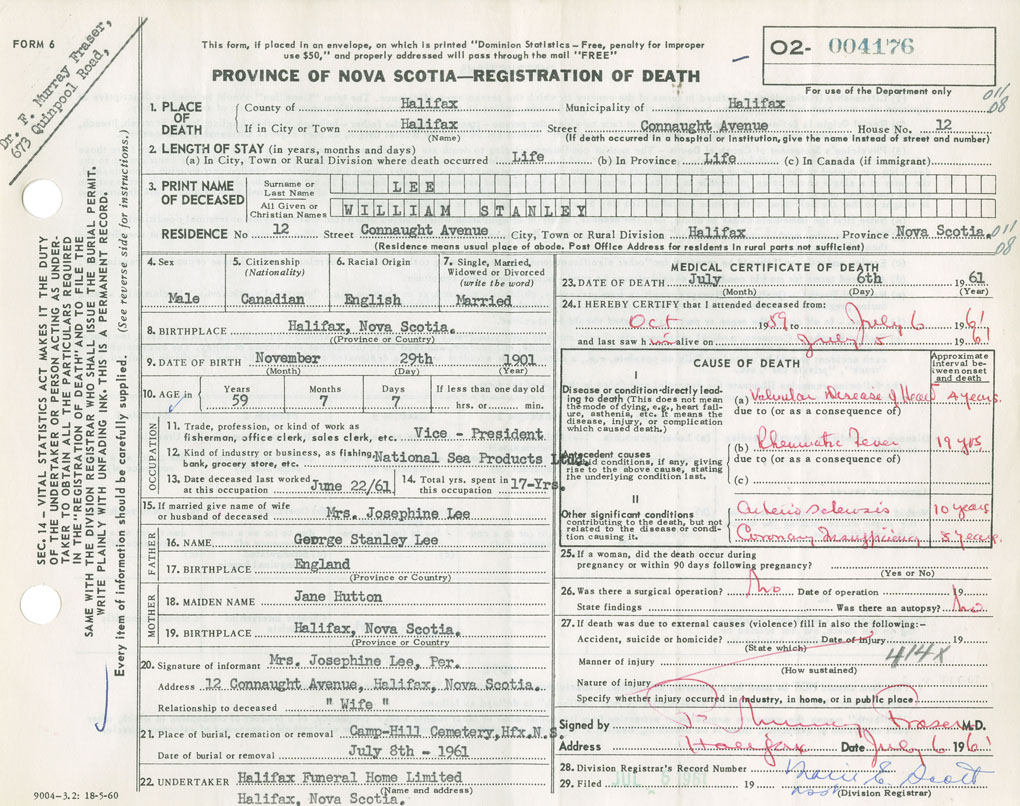 FORM 6
Dr. F. Murray Fraser,
673 Quinpool Road,
This form, if placed in an envelope, on which is printed "Dominion Statistics – Free, penalty for improper
use $50," and properly addressed will pass through the mail "FREE"
PROVINCE OF NOVA SCOTIA—REGISTRATION OF DEATH
O2- 004176
For use of the Department only
011/08
1. PLACE OF DEATH
County of Halifax Municipality of Halifax
If in City or Town Halifax Street Connaught Avenue House No. 12
(Name) (If death occurred in a hospital or institution, give the name instead of street and number)
2. LENGTH OF STAY (in years, months and days)
(a) In City, Town or Rural Division where death occurred Life (b) In Province Life (c) In Canada (if immigrant)
3. PRINT NAME OF DECEASED
Surname or Last Name LEE
All Given or Christian Names WILLIAM STANLEY
RESIDENCE No 12 Street Connaught Avenue City, Town or Rural Division Halifax Province Nova Scotia.
011/08
(Residence means usual place of abode. Post Office Address for residents in rural parts not sufficient)
4. Sex
Male
5. Citizenship (Nationality)
Canadian
6. Racial Origin
English
7. Single, Married, Widowed or Divorced (write the word)
Married
8. BIRTHPLACE Halifax, Nova Scotia.
(Province or Country)
9. DATE OF BIRTH November 29th 1901
(Month) (Day) (Year)
10. AGE in Years 59 Months 7 Days 7 If less than one day old hrs. or min.
OCCUPATION
11. Trade, profession, or kind of work as
fisherman, office clerk, sales clerk, etc. Vice - President
12. Kind of industry or business, as fishing,
bank, grocery store, etc. National Sea Products Ltd.
13. Date deceased last worked at this occupation June 22/61
14. Total yrs. spent in this occupation 17-Yrs.
15. If married give name of wife
or husband of deceased Mrs. Josephine Lee
FATHER
16. NAME George Stanley Lee
17. BIRTHPLACE England
(Province or Country)
MOTHER
18. MAIDEN NAME Jane Hutton
19. BIRTHPLACE Halifax, Nova Scotia.
(Province or Country
20. Signature of informant Mrs. Josephine Lee, Per.
Address 12 Connaught Avenue, Halifax, Nova Scotia.
Relationship to deceased " Wife "
21. Place of burial, cremation or removal Camp-Hill Cemetery, Hfx.N.S.
Date of burial or removal July 8th - 1961
22. UNDERTAKER Halifax Funeral Home Limited
(Name and address)
Halifax, Nova Scotia.
MEDICAL CERTIFICATE OF DEATH
23. DATE OF DEATH July 6th 1961
(Month) (Day) (Year)
24. I HEREBY CERTIFY that I attended deceased from:
Oct 1959 to July 6 1961
and last saw him alive on July 5 1961
CAUSE OF DEATH
Approximate interval between onset and death
I
Disease or condition directly leading to death (This does not mean
the mode of dying, e.g., heart failure, asthenia, etc. It means the
disease, injury, or complication
which caused death.)
(a) Valvular Disease of Heart 4 years.
due to (or as a consequence of)
Antecedent causes
Morbid conditions, if any, giving
rise to the above cause, stating
the underlying condition last.
(b) Rheumatic Fever 19 yrs
due to (or as a consequence of)
(c)
II
Other significant conditions
contributing to the death, but not
related to the disease or condition causing it.
Arteriosclerosis 10 years
Coronary Insufficiency 8 years.
25. If a woman, did the death occur during
pregnancy or within 90 days following pregnancy?
(Yes or No)
26. Was there a surgical operation? No Date of operation 19
State findings Was there an autopsy? No
27. If death was due to external causes (violence) fill in also the following:–
Accident, suicide or homicide? Date of injury 19
(State which)
414X
Manner of injury
(How sustained)
Nature of injury
Specify whether injury occurred in industry, in home, or in public place
Signed by F. Murray Fraser M.D.
Address Halifax Date July 6 1961
28. Division Registrar's Record Number
29. Filed JUL 1961 19 Marie E. Scott
(Division Registrar)
SEC. 14 – VITAL STATISTICS ACT MAKES IT THE DUTY
OF THE UNDERTAKER OR PERSON ACTING AS UNDERTAKER TO OBTAIN ALL THE PARTICULARS REQUIRED
IN THE "REGISTRATION OF DEATH" AND TO FILE THE
SAME WITH THE DIVISION REGISTRAR WHO SHALL ISSUE THE BURIAL PERMIT.
WRITE PLAINLY WITH UNFADING INK. THIS IS A PERMANENT RECORD.
Every item of information should be carefully supplied. (See reverse side for instructions.)
9004-3.2: 18-5-60